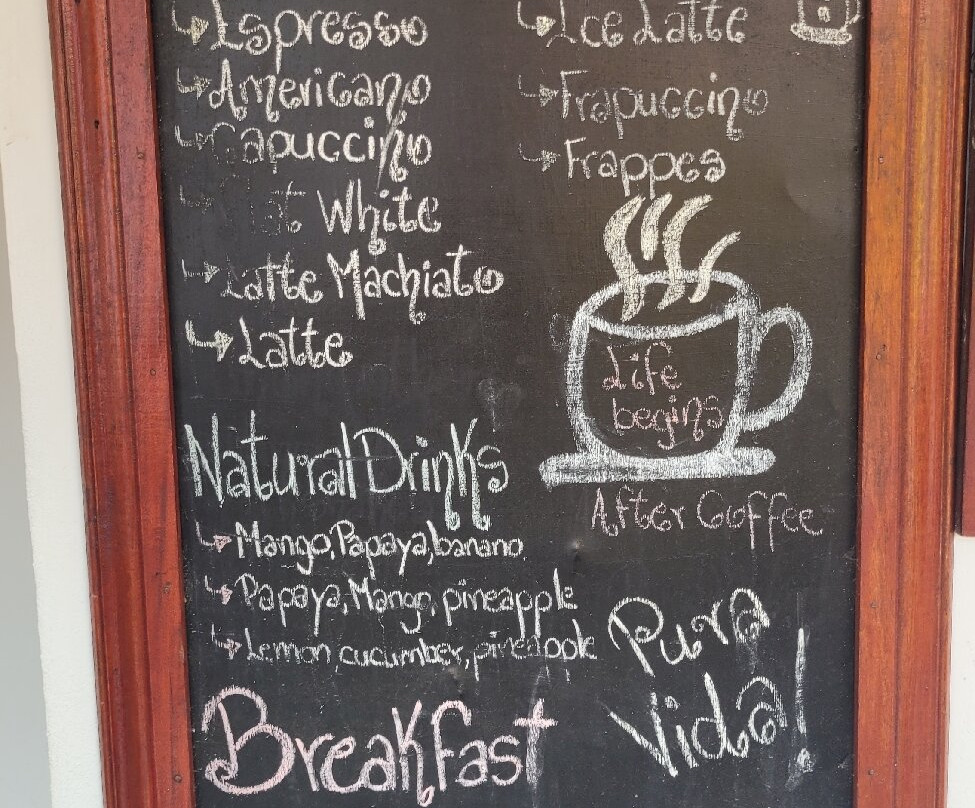 Espresso
Americano
Capuccino
Flat White
Latte Machiato
Latte
Ice Latte
Frapuccino
Frappes
Life
begins
After Coffee
Natural Drinks
Mango, Papaya, banano
Papaya, Mango, pineapple
Lemon cucumber, pineapple
Pura
Vida!
Breakfast